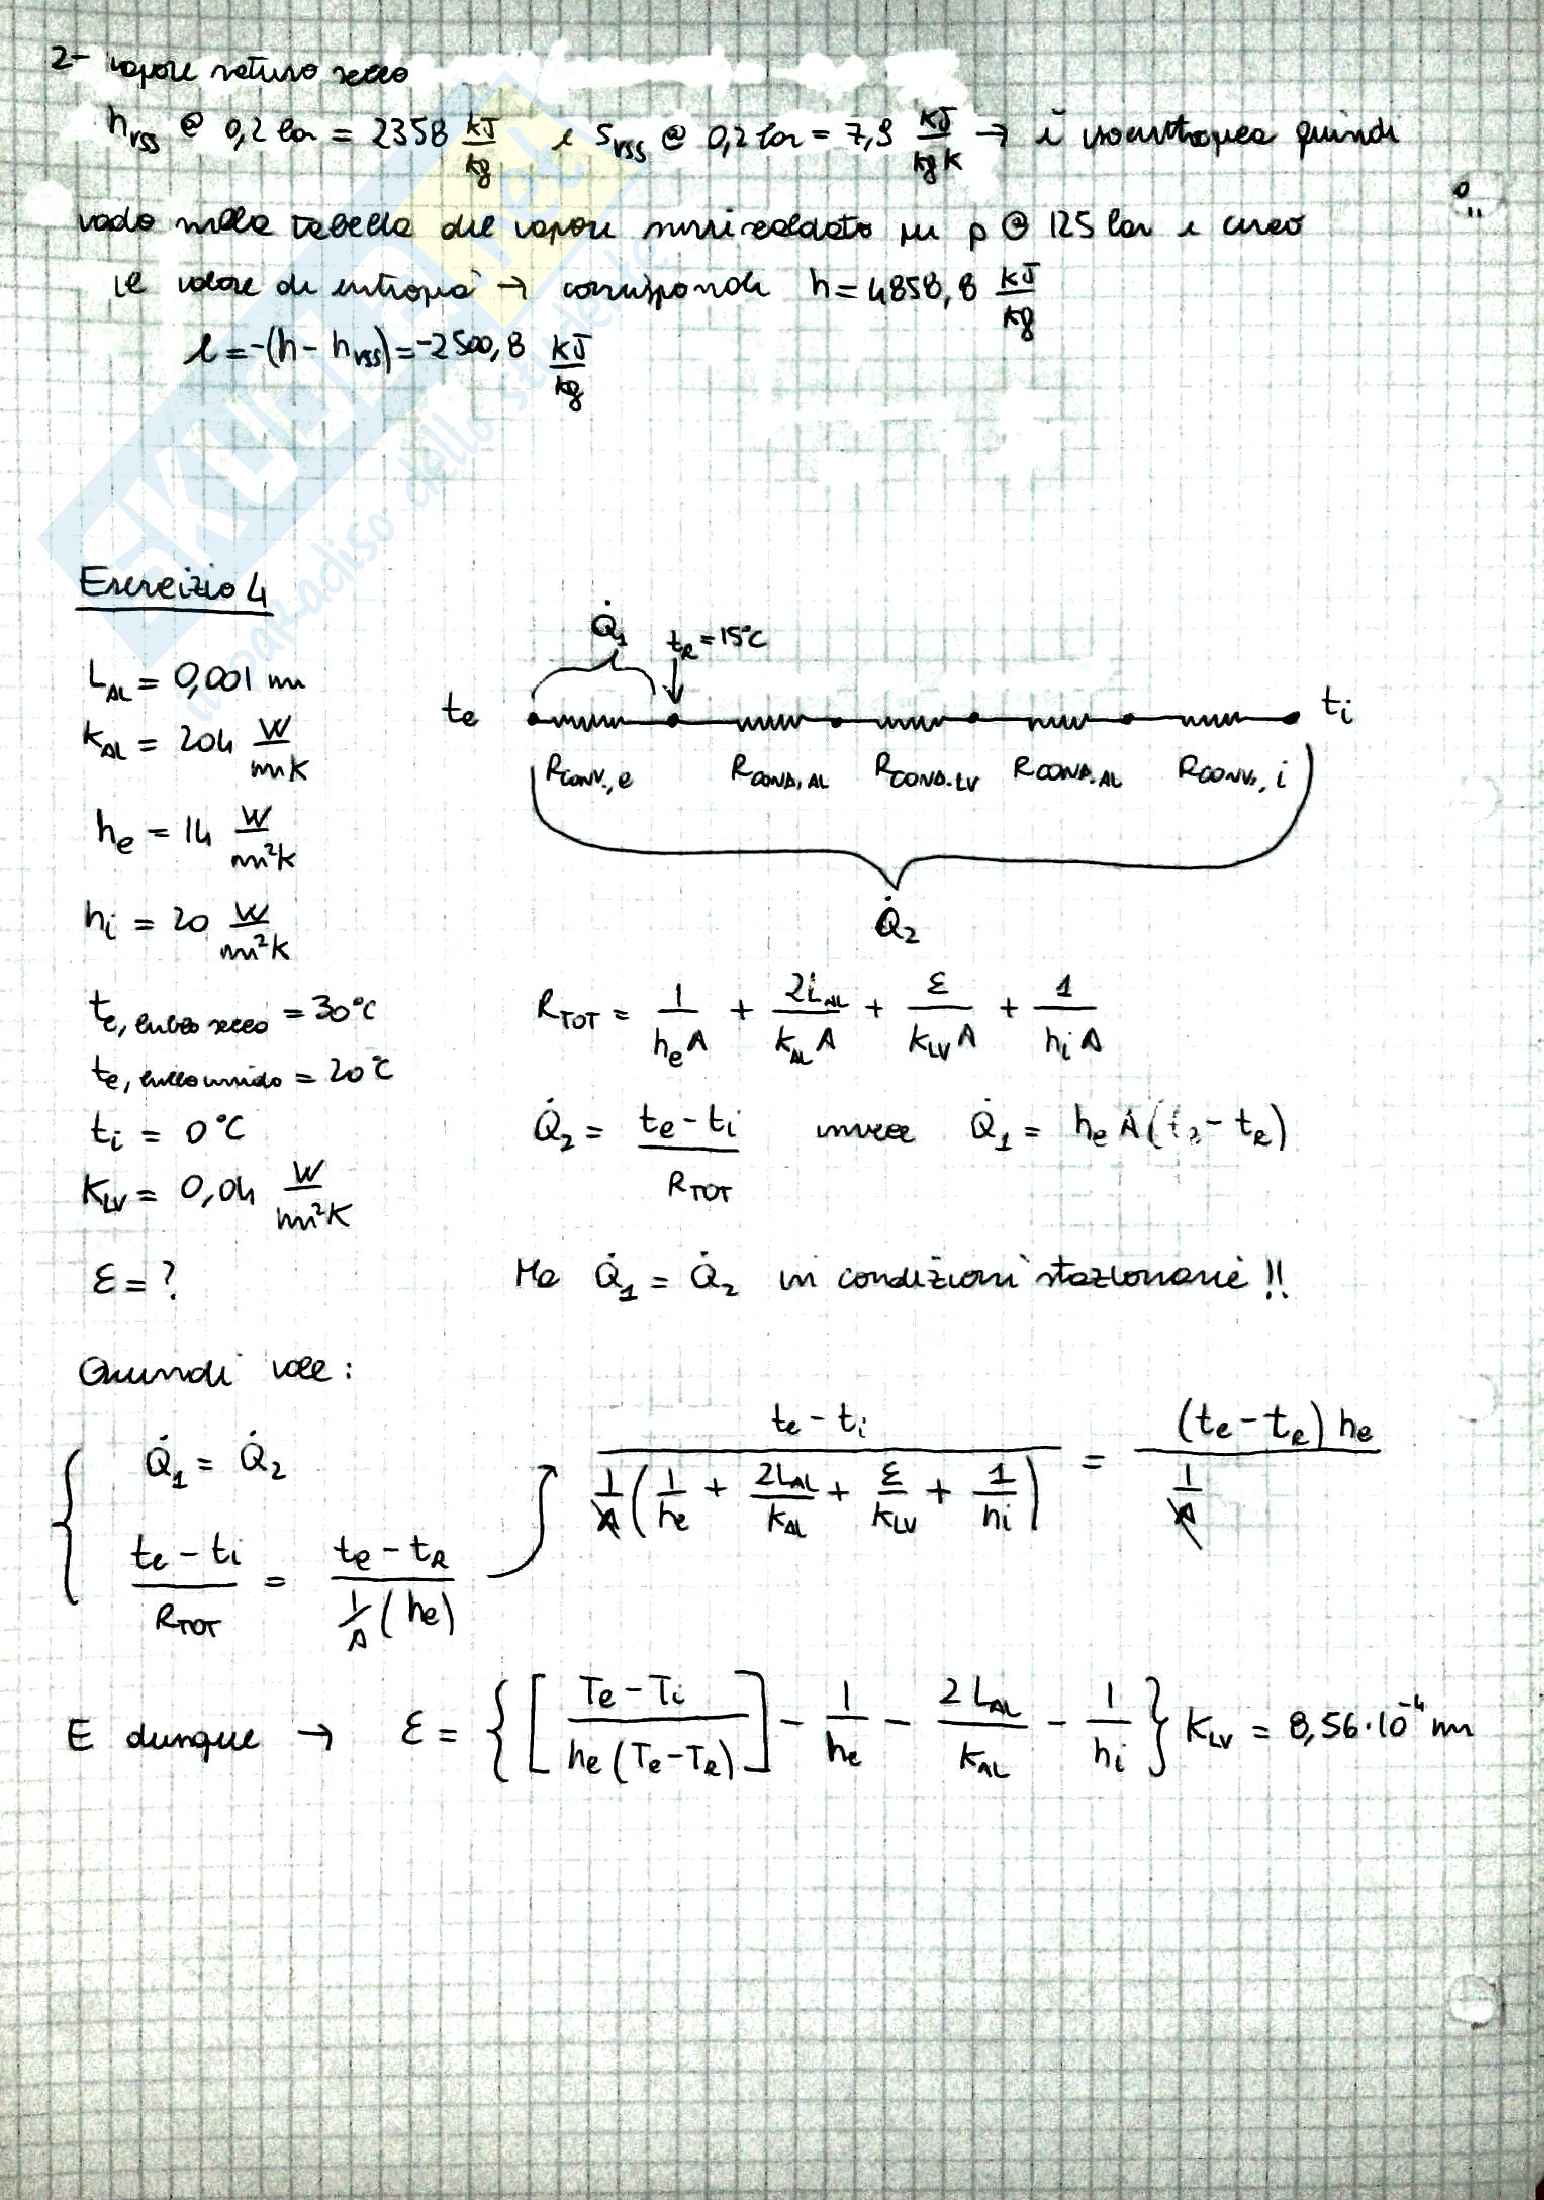 2- vapore saturo secco
h_VSS @ 0,2 bar = 2358 kJ/kg e s_VSS @ 0,2 bar = 7,9 kJ/kgK → è isoentropica quindi
vado nella tabella del vapore surriscaldato su p @ 125 bar e cerco
il valore di entropia → corrisponde h = 4858,8 kJ/kg
l = -(h - h_VSS) = -2500,8 kJ/kg
SKUOLA.net
il paradiso dello studente
Esercizio 4
L_AL = 0,001 m
k_AL = 204 W/mK
h_e = 14 W/m²K
h_i = 20 W/m²K
t_e, bulbo secco = 30°C
t_e, bulbo umido = 20°C
t_i = 0°C
K_LV = 0,04 W/m²K
ε = ?
Q̇_1 t_R = 15°C
t_e t_i
R_CONV., e R_COND, AL R_COND. LV R_COND. AL R_CONV., i
Q̇_2
R_TOT = 1/(h_e A) + 2L_AL/(k_AL A) + ε/(k_LV A) + 1/(h_i A)
Q̇_2 = (t_e - t_i)/R_TOT invece Q̇_1 = h_e A (t_e - t_R)
Ma Q̇_1 = Q̇_2 in condizioni stazionarie !!
Quindi vale:
Q̇_1 = Q̇_2
(t_e - t_i)/R_TOT = (t_e - t_R)/(1/A (h_e))
(t_e - t_i)/(1/A (1/h_e + 2L_AL/k_AL + ε/k_LV + 1/h_i)) = (t_e - t_R) h_e/(1/A)
E dunque → ε = {[(T_e - T_i)/(h_e (T_e - T_R))] - 1/h_e - 2L_AL/k_AL - 1/h_i} K_LV = 8,56·10⁻⁴ m